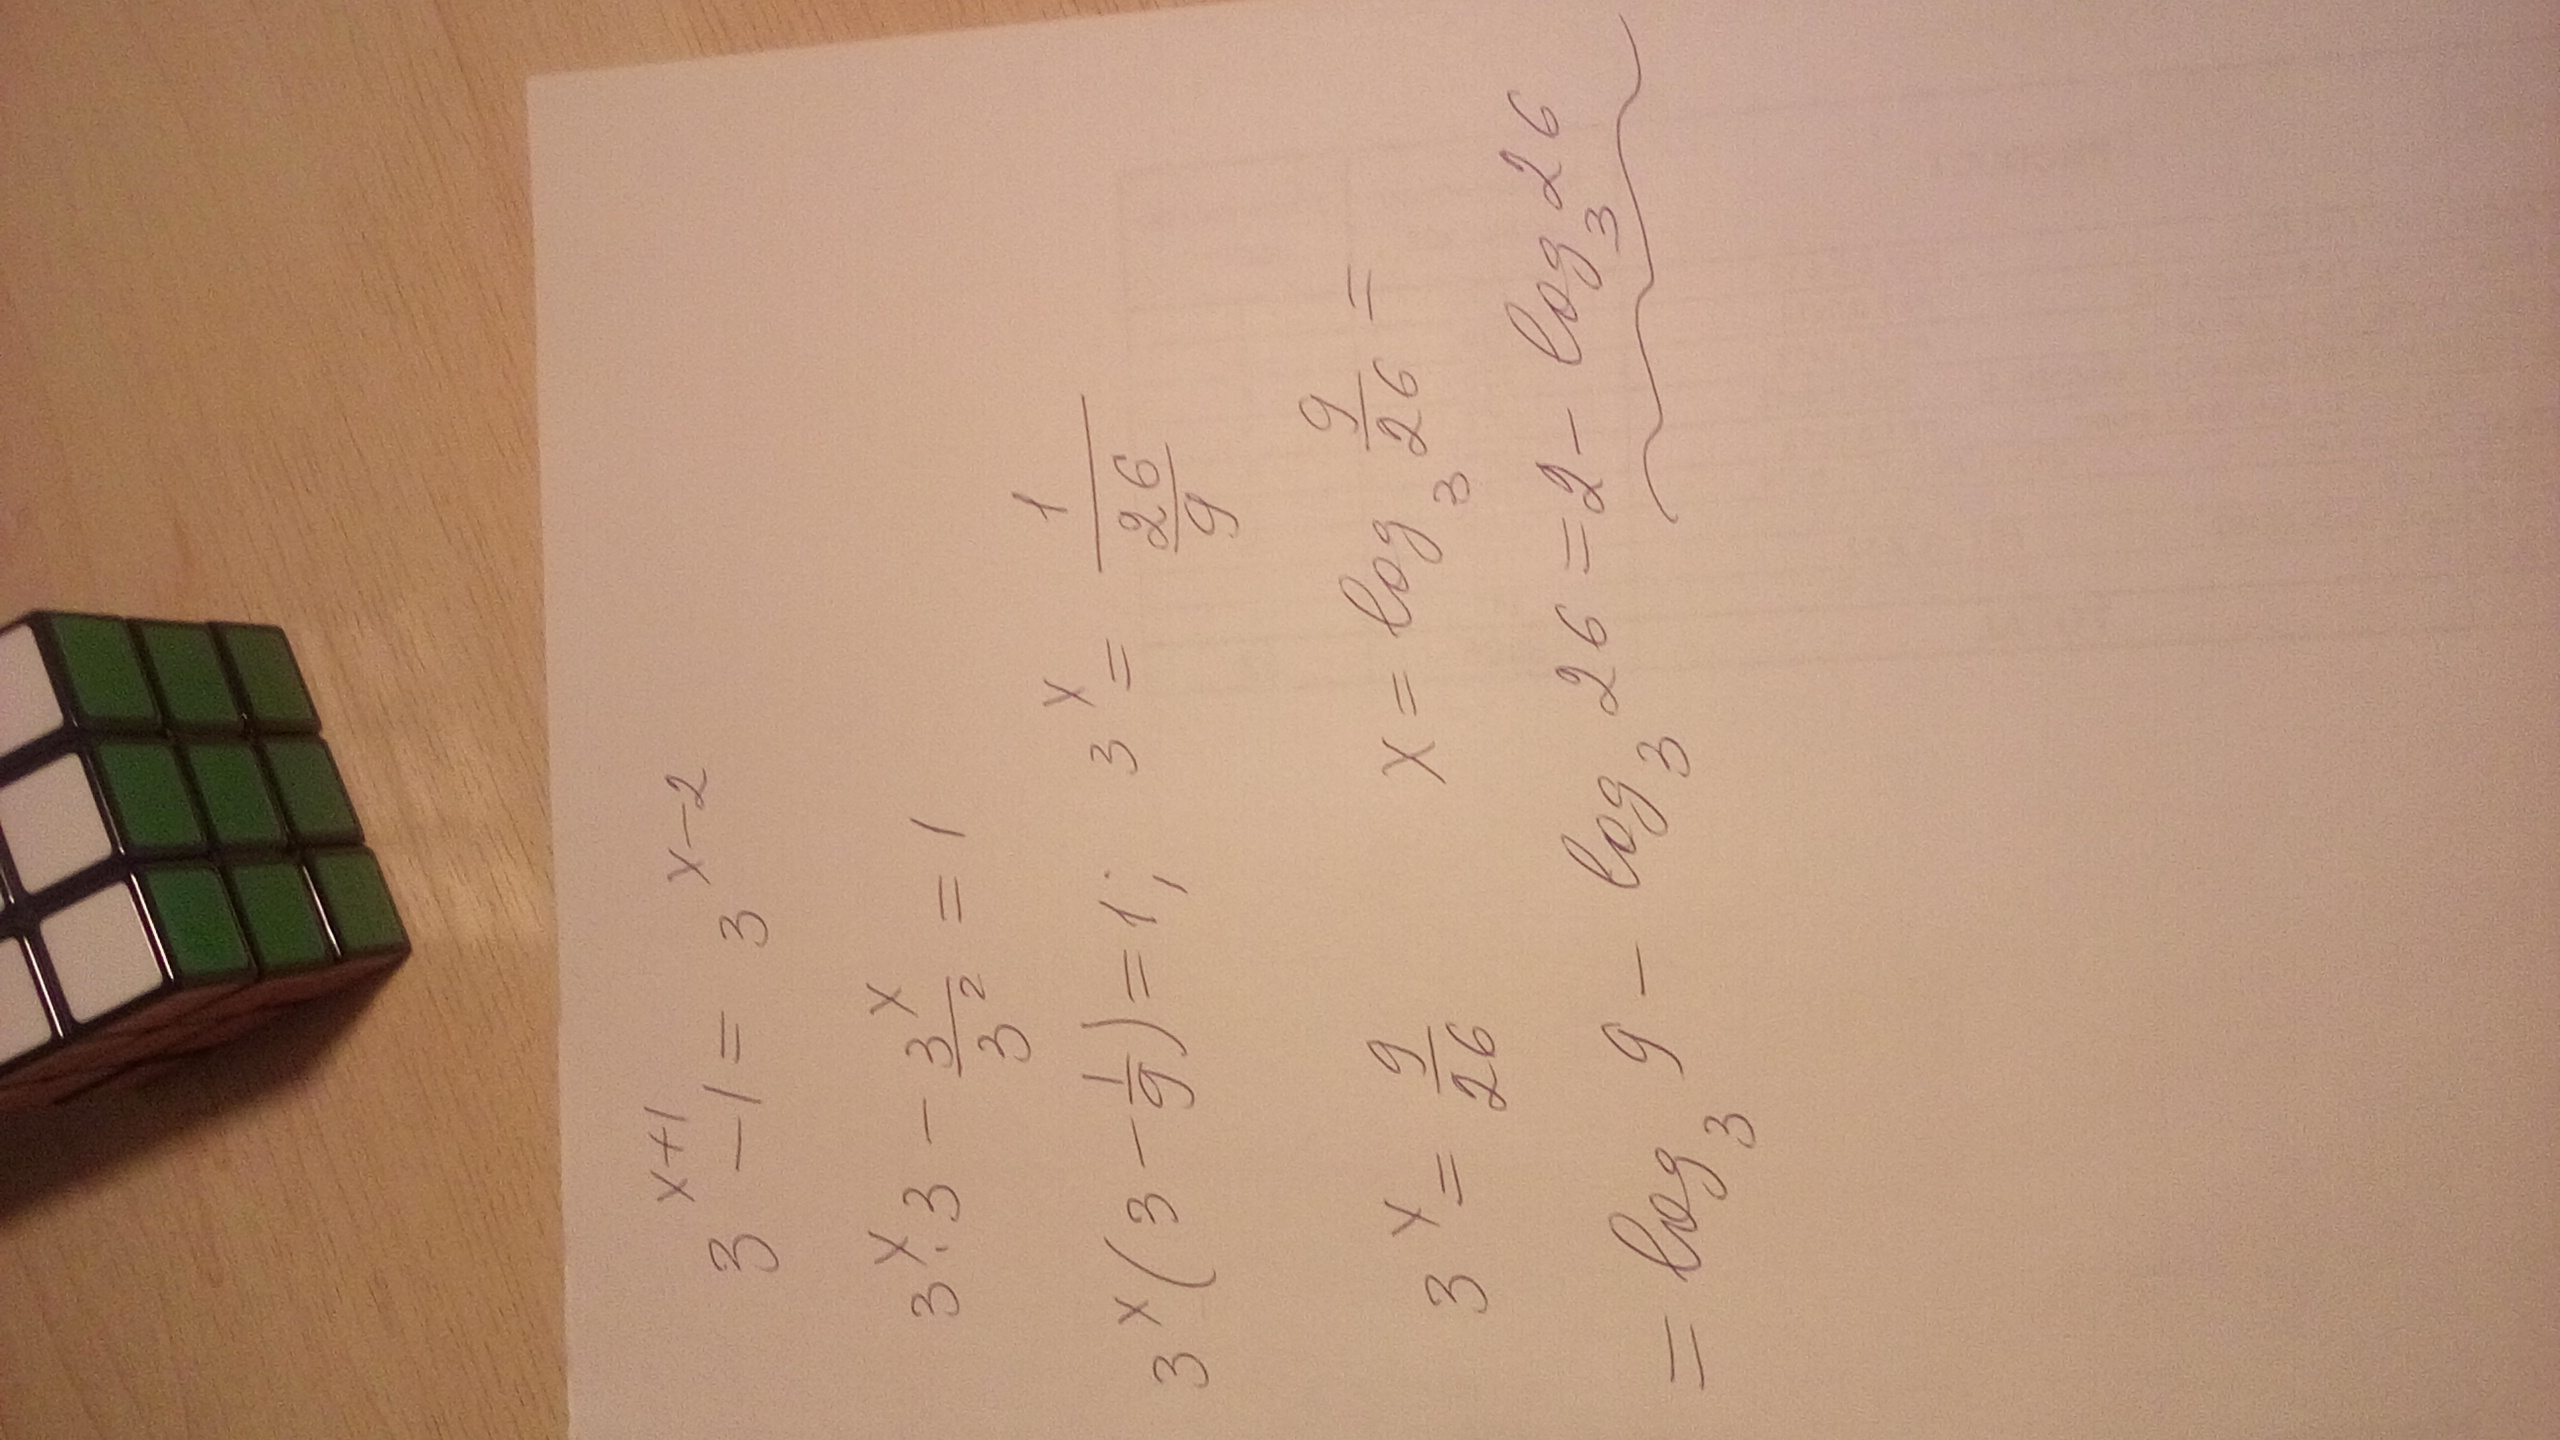 3^{x+1} - 1 = 3^{x-2}
3^x · 3 - \frac{3^x}{3^2} = 1
3^x (3 - \frac{1}{9}) = 1; 3^x = \frac{1}{\frac{26}{9}}
3^x = \frac{9}{26} x = log_3 \frac{9}{26} =
= log_3 9 - log_3 26 = 2 - log_3 26